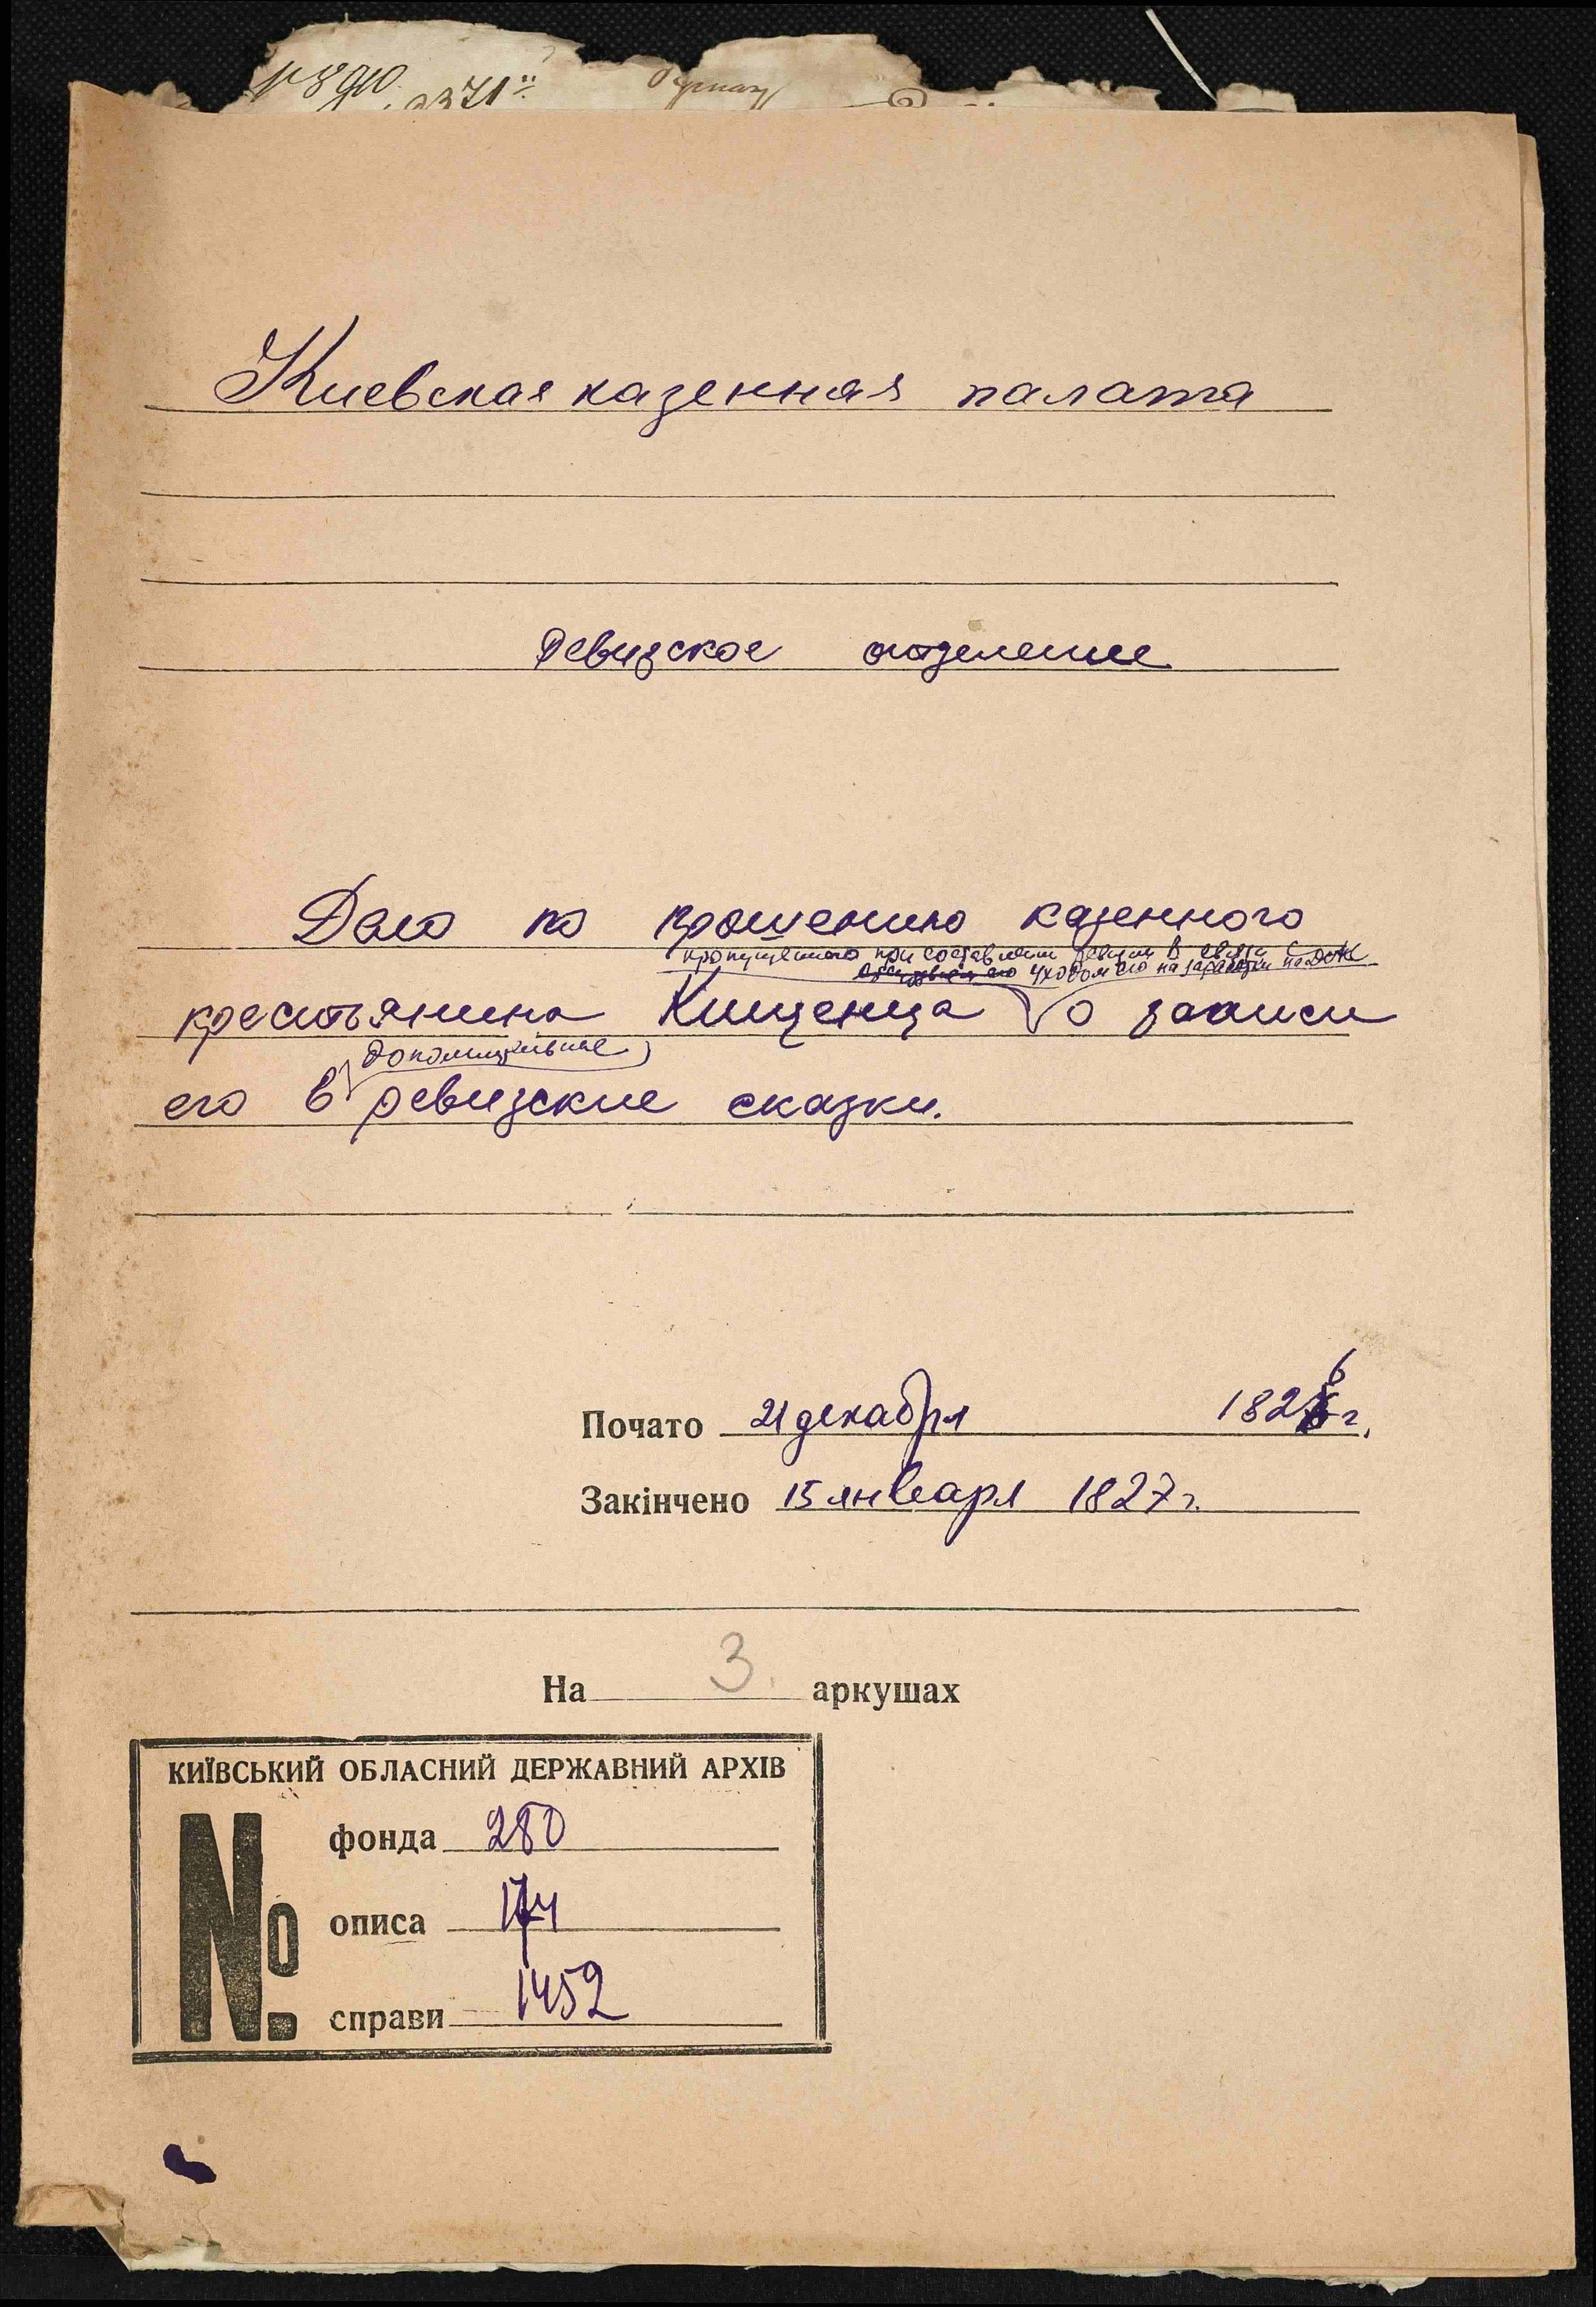 Киевская казенная палата
Ревизское отделение
Дело по прошению казенного
пропущенного при составлении ревизии в связи с
уходом его на заработки на Дон
крестьянина Кищенца о записи
дополнительные
его в ревизские сказки.
Почато 21 декабря 1826 г.
Закінчено 15 января 1827 г.
На 3 аркушах
КИЇВСЬКИЙ ОБЛАСНИЙ ДЕРЖАВНИЙ АРХІВ
№
фонда 280
описа 174
справи 1452